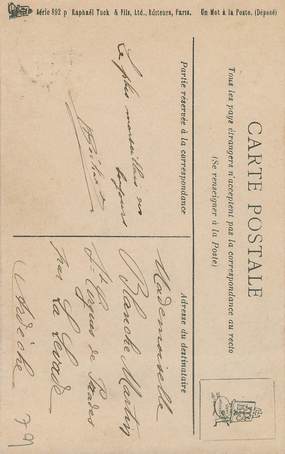 Série 892 p Raphaël Tuck & Fils, Ltd., Editeurs, Paris. Un Mot à la Poste. (Déposé)
CARTE POSTALE
Tous les pays étrangers n'acceptent pas la correspondance au recto
(Se renseigner à la Poste)
Partie réservée à la correspondance
Adresse du destinataire
Le plus
toujours
Mademoiselle
Blanche Martin
St Cirgues de Prades
par La Levade
Ardèche